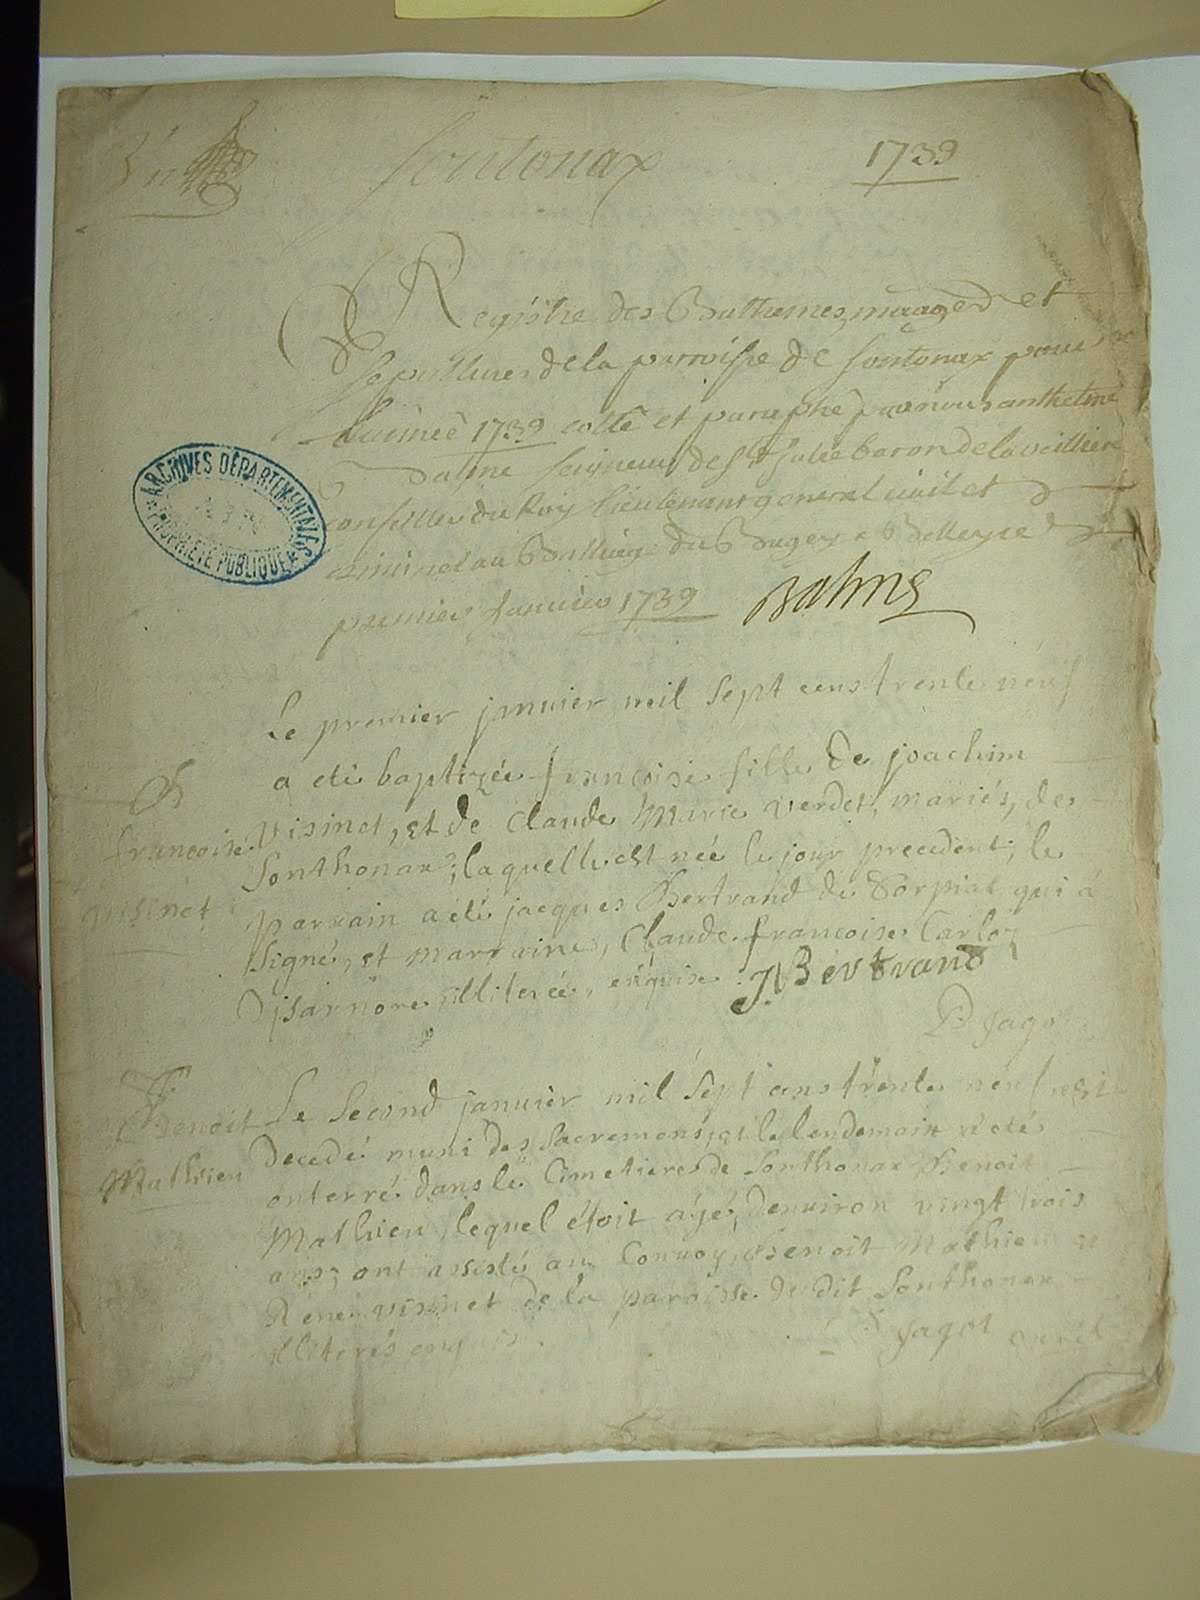 Sontonax 1739
Registre des Bathemes, mariages et
sepultures de la parroisse de Sontonax pour
l'année 1739 cotté et paraphé par nous anthelme
Balme Seigneur de St Julie baron de la veilliere
conseiller du Roy lieutenant general civil et
criminel au Bailliage du Bugey a Belley ce
premier Janvier 1739 Balme
ARCHIVES DÉPARTEMENTALES
PROPRIÉTÉ PUBLIQUE
Le premier janvier mil sept cens trente neuf
a eté baptizée francoise fille de joachim
visinet, et de Claude Marie verdet, mariés, de
Sonthonax, laquelle est née le jour precedent; le
parrain a été jacques Bertrand de Sorpiat qui à
signé, et marraine, Claude francoise Carloz
D'isarnore illiterée, enquise. J Bertrand
francoise
visinet
Jagot
Le second janvier mil sept cens trente neuf est
decedé muni des sacremens, et le lendemain à eté
enterré dans le Cimetiere de Sonthonax Benoit
Mathieu, lequel étoit agé, d'environ vingt trois
ans; ont assisté au Convoy, Benoit Mathieu et
Réne visinet de la paroisse du dit Sonthonax
illiterés enquis.
Benoit
Mathieu
Jagot curé